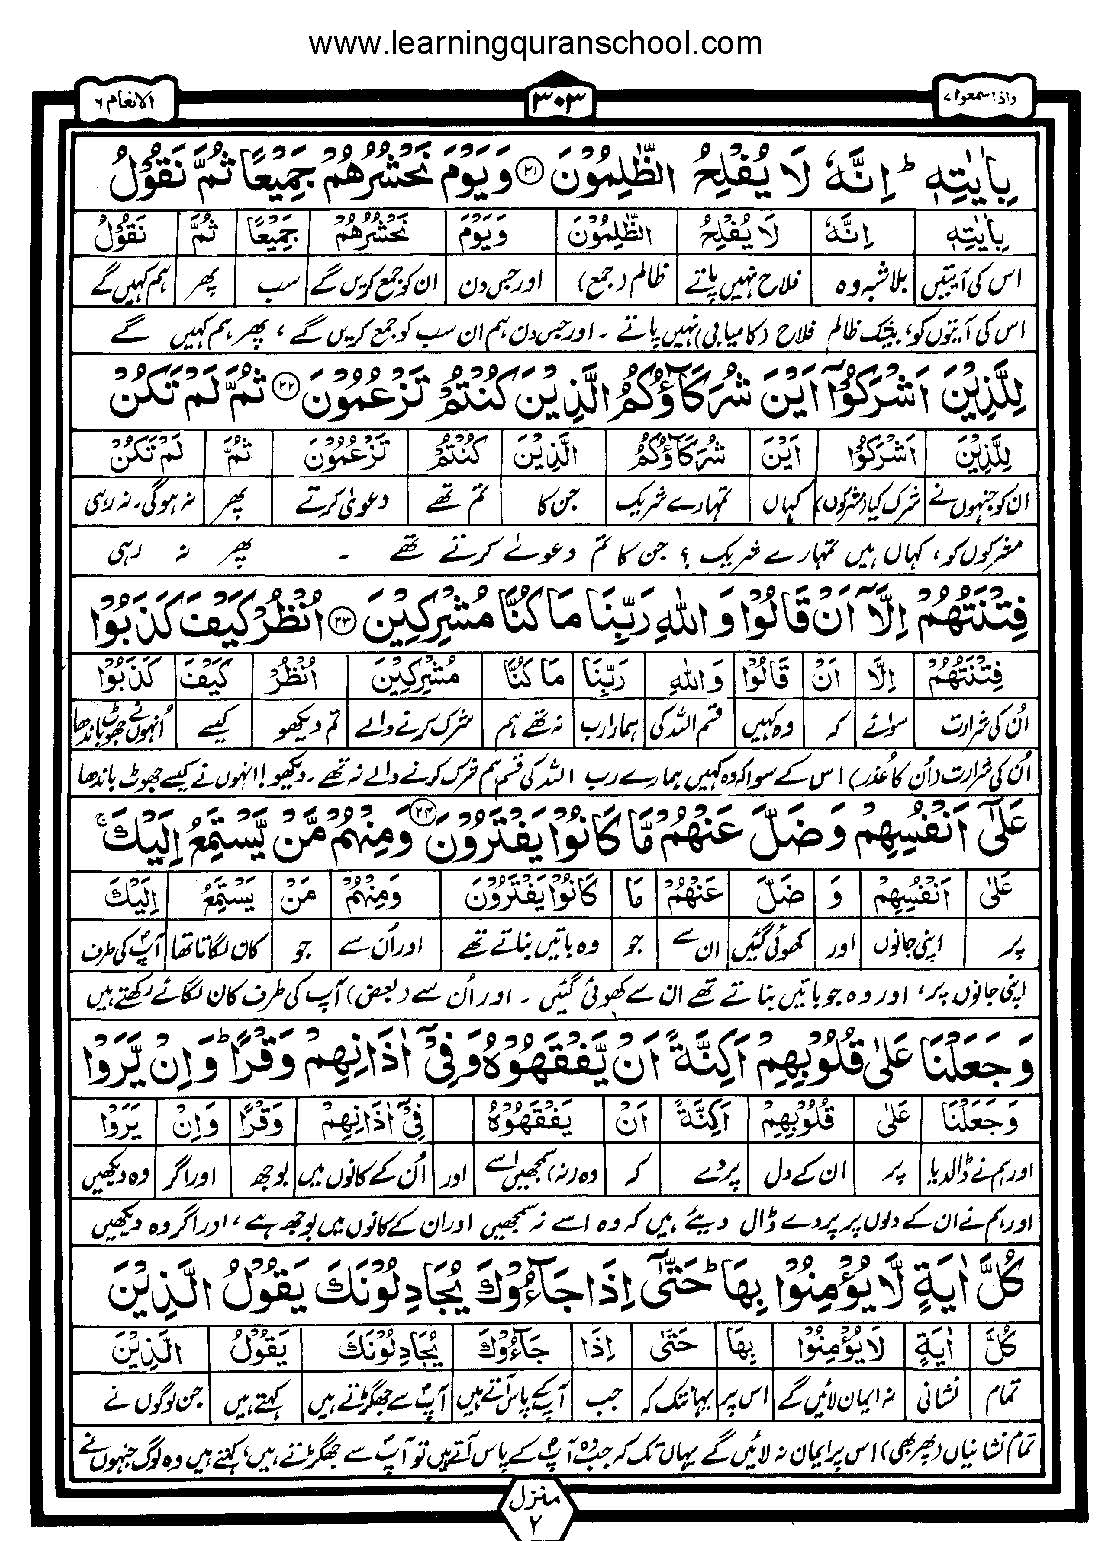 www.learningquranschool.com
واذا سمعوا ۷
۳۰۳
الانعام ۶
بِاٰيٰتِهٖ ؕ اِنَّهٗ لَا يُفْلِحُ الظّٰلِمُوْنَ ۲۱ وَيَوْمَ نَحْشُرُهُمْ جَمِيْعًا ثُمَّ نَقُوْلُ
بِاٰيٰتِهٖ اِنَّهٗ لَا يُفْلِحُ الظّٰلِمُوْنَ وَيَوْمَ نَحْشُرُهُمْ جَمِيْعًا ثُمَّ نَقُوْلُ
اس کی آیتیں بلاشبہ وہ فلاح نہیں پاتے ظالم (جمع) اور جس دن ان کو جمع کریں گے سب پھر ہم کہیں گے
اس کی آیتوں کو، بیشک ظالم فلاح (کامیابی) نہیں پاتے ۔ اور جس دن ہم ان سب کو جمع کریں گے ، پھر ہم کہیں گے
لِلَّذِيْنَ اَشْرَكُوْۤا اَيْنَ شُرَكَآؤُكُمُ الَّذِيْنَ كُنْتُمْ تَزْعُمُوْنَ ۲۲ ثُمَّ لَمْ تَكُنْ
لِلَّذِيْنَ اَشْرَكُوْا اَيْنَ شُرَكَآؤُكُمُ الَّذِيْنَ كُنْتُمْ تَزْعُمُوْنَ ثُمَّ لَمْ تَكُنْ
ان کو جنہوں نے شرک کیا (مشرکوں) کہاں تمہارے شریک جن کا تم تھے دعویٰ کرتے پھر نہ ہوگی۔ نہ رہی
مشرکوں کو، کہاں ہیں تمہارے شریک ؟ جن کا تم دعوےٰ کرتے تھے ۔ پھر نہ رہی
فِتْنَتُهُمْ اِلَّاۤ اَنْ قَالُوْا وَاللّٰهِ رَبِّنَا مَا كُنَّا مُشْرِكِيْنَ ۲۳ اُنْظُرْ كَيْفَ كَذَبُوْا
فِتْنَتُهُمْ اِلَّا اَنْ قَالُوْا وَاللّٰهِ رَبِّنَا مَا كُنَّا مُشْرِكِيْنَ اُنْظُرْ كَيْفَ كَذَبُوْا
اُن کی شرارت سوائے کہ وہ کہیں قسم اللہ کی ہمارا رب نہ تھے ہم شرک کرنے والے تم دیکھو کیسے اُنہوں نے جھوٹ باندھا
اُن کی شرارت (اُن کا عُذر) اس کے سوا کہ وہ کہیں ہمارے رب اللہ کی قسم ہم شرک کرنے والے نہ تھے ۔ دیکھو! انہوں نے کیسے جھوٹ باندھا
عَلٰۤى اَنْفُسِهِمْ وَضَلَّ عَنْهُمْ مَّا كَانُوْا يَفْتَرُوْنَ ۲۴ وَمِنْهُمْ مَّنْ يَّسْتَمِعُ اِلَيْكَ ۚ
عَلٰى اَنْفُسِهِمْ وَ ضَلَّ عَنْهُمْ مَا كَانُوْا يَفْتَرُوْنَ وَمِنْهُمْ مَنْ يَسْتَمِعُ اِلَيْكَ
پر اپنی جانوں اور کھوئی گئیں ان سے جو وہ باتیں بناتے تھے اور اُن سے جو کان لگاتا تھا آپؐ کی طرف
اپنی جانوں پر، اور وہ جو باتیں بناتے تھے ان سے کھوئی گئیں ۔ اور اُن سے (بعض) آپ کی طرف کان لگائے رکھتے ہیں
وَجَعَلْنَا عَلٰى قُلُوْبِهِمْ اَكِنَّةً اَنْ يَّفْقَهُوْهُ وَفِيْۤ اٰذَانِهِمْ وَقْرًا ؕ وَاِنْ يَّرَوْا
وَجَعَلْنَا عَلٰى قُلُوْبِهِمْ اَكِنَّةً اَنْ يَفْقَهُوْهُ وَ فِيْۤ اٰذَانِهِمْ وَقْرًا وَاِنْ يَرَوْا
اور ہم نے ڈالدیا پر ان کے دل پردے کہ وہ (نہ) سمجھیں اسے اور اُن کے کانوں میں بوجھ اور اگر وہ دیکھیں
اور ہم نے ان کے دلوں پر پردے ڈال دیئے ہیں کہ وہ اسے نہ سمجھیں اور ان کے کانوں میں بوجھ ہے ، اور اگر وہ دیکھیں
كُلَّ اٰيَةٍ لَّا يُؤْمِنُوْا بِهَا ؕ حَتّٰۤى اِذَا جَآءُوْكَ يُجَادِلُوْنَكَ يَقُوْلُ الَّذِيْنَ
كُلَّ اٰيَةٍ لَا يُؤْمِنُوْا بِهَا حَتّٰى اِذَا جَآءُوْكَ يُجَادِلُوْنَكَ يَقُوْلُ الَّذِيْنَ
تمام نشانی نہ ایمان لائیں گے اس پر یہانتک کہ جب آپؐ کے پاس آتے ہیں آپؐ سے جھگڑتے ہیں کہتے ہیں جن لوگوں نے
تمام نشانیاں (پھر بھی) اس پر ایمان نہ لائیں گے یہاں تک کہ جب وہ آپؐ کے پاس آتے ہیں تو آپؐ سے جھگڑتے ہیں، کہتے ہیں وہ لوگ جنہوں نے
منزل
۲